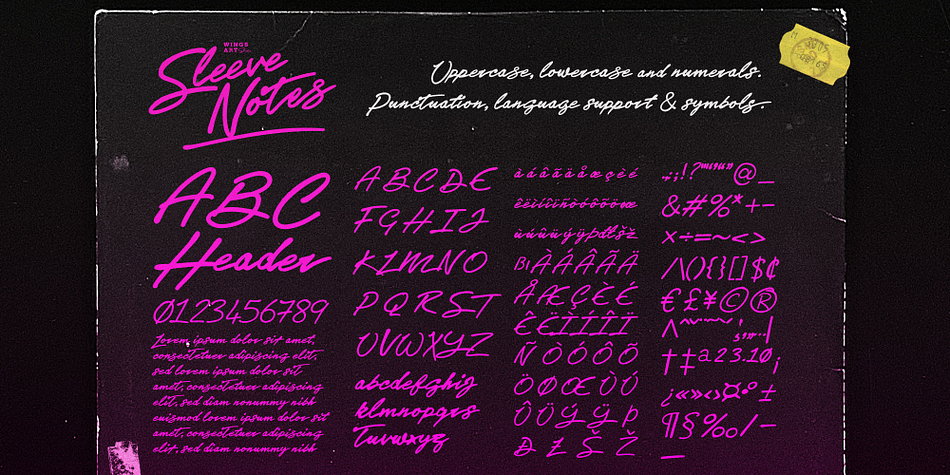 WINGS
ART
Sleeve
Notes
Uppercase, lowercase and numerals.
Punctuation, language support & symbols.
ABC
Header
0123456789
Lorem ipsum dolor sit amet,
consectetuer adipiscing elit,
sed lorem ipsum dolor sit
amet, consectetuer adipiscing
elit, sed diam nonummy nibh
euismod lorem ipsum dolor sit
amet, consectetuer adipiscing
elit, sed diam nonummy nibh
ABCDE
FGHIJ
KLMNO
PQRST
UVWXYZ
abcdefghij
klmnopqrs
Tuvwxyz
àáâãäåæçèé
êëìíîïñòóôõöøœ
ÀÁÂÃÄ
ÅÆÇÈÉ
ÊËÌÍÎÏ
ÑÒÓÔÕ
ÖØŒÙÚ
ÛÜÝŸÞ
ÐŁŠŽ
@_
&#%*+-
×÷=~<>
/\(){}[]$¢
€£¥©®
††a23.10¡
¿«»‹›¤°º±
¶§‰/-